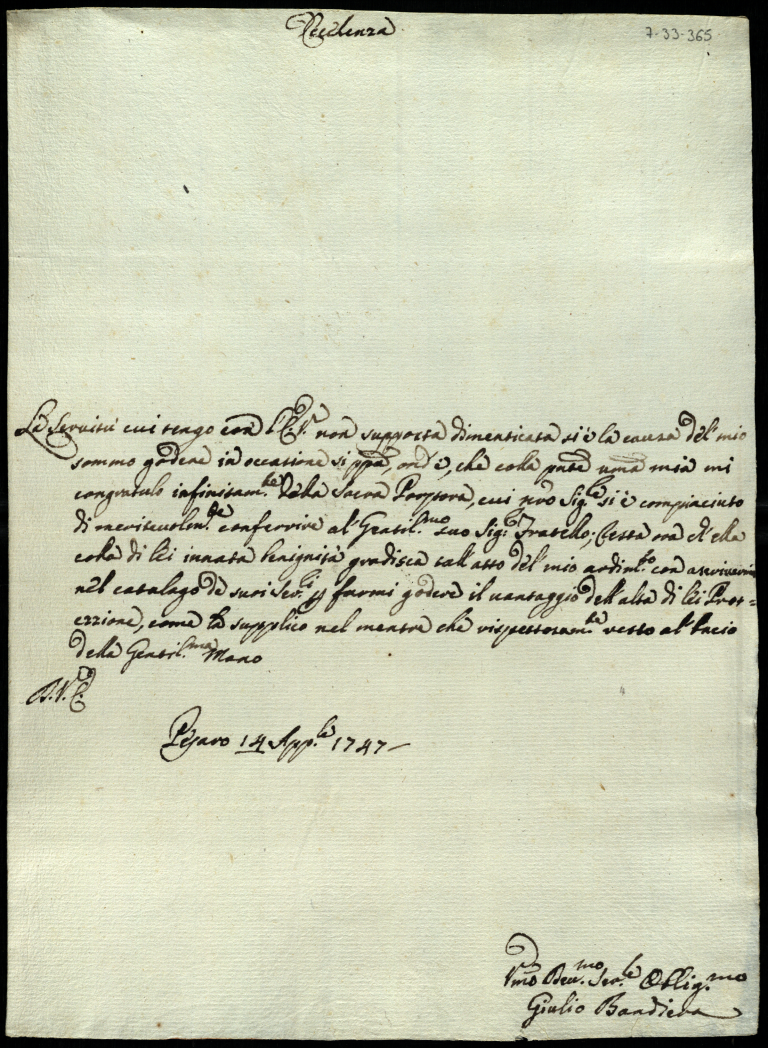 Eccelenza
7-33-365
La Servitù cui tengo con l'E. V. non supposta dimenticata si è la causa del mio
sommo godere in occasione si ppa, ond'è, che colla pnte umā mia mi
congratulo infinitam.te della Sacra Porpora, cui nr̃o Sig.re si è compiaciuto
di meritevolm.te conferrire al Gentil.mo suo Sig.r Fratello; Resta ora ch'ella
colla di lei innata benignità gradisca tall'atto del mio ardim.to con ascrivermi
nel catalago de suoi Ser.ri, e farmi godere il vantaggio dell'alta di lei Prot=
ezzione, come la supplico nel mentre che rispettosam.te resto al bacio
della Gentil.ma Mano
D. V. E.
Pesaro 14 App.le 1747
Vmõ Deu.mo Ser.le Oblig.mo
Giulio Bandiera